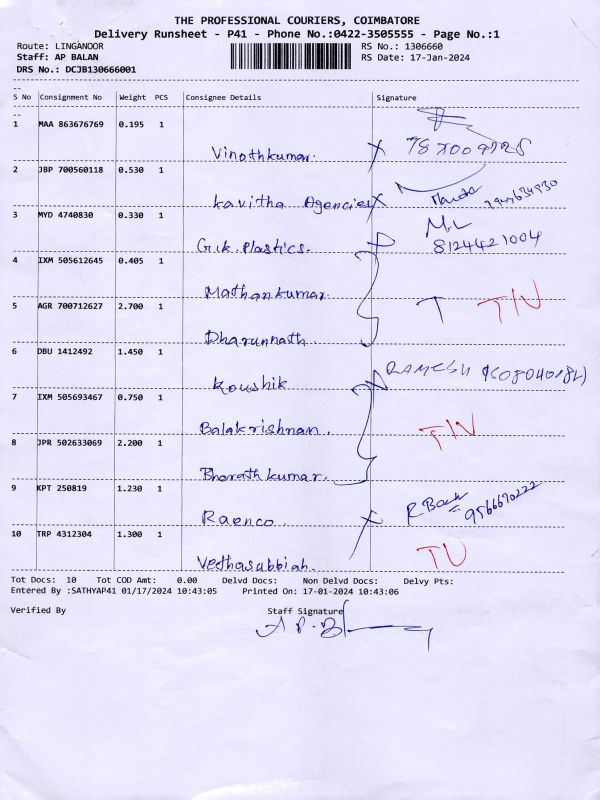 THE PROFESSIONAL COURIERS, COIMBATORE
Delivery Runsheet - P41 - Phone No.:0422-3505555 - Page No.:1
Route: LINGANOOR RS No.: 1306660
Staff: AP BALAN RS Date: 17-Jan-2024
DRS No.: DCJB130666001
S No Consignment No Weight PCS Consignee Details Signature
1 MAA 863676769 0.195 1
Vinothkumar.
2 JBP 700560118 0.530 1
Kavitha Agencies
3 MYD 4740830 0.330 1
G.K. Plastics. 8124421004
4 IXM 505612645 0.405 1
Mathankumar.
5 AGR 700712627 2.700 1
Dharunnath
6 DBU 1412492 1.450 1 RAMESH
Koushik
7 IXM 505693467 0.750 1
Balakrishnan.
8 JPR 502633069 2.200 1
Bharathkumar.
9 KPT 250819 1.230 1 9566670222
Raenco.
10 TRP 4312304 1.300 1
Vedhasubbiah.
Tot Docs: 10 Tot COD Amt: 0.00 Delvd Docs: Non Delvd Docs: Delvy Pts:
Entered By :SATHYAP41 01/17/2024 10:43:05 Printed On: 17-01-2024 10:43:06
Verified By Staff Signature